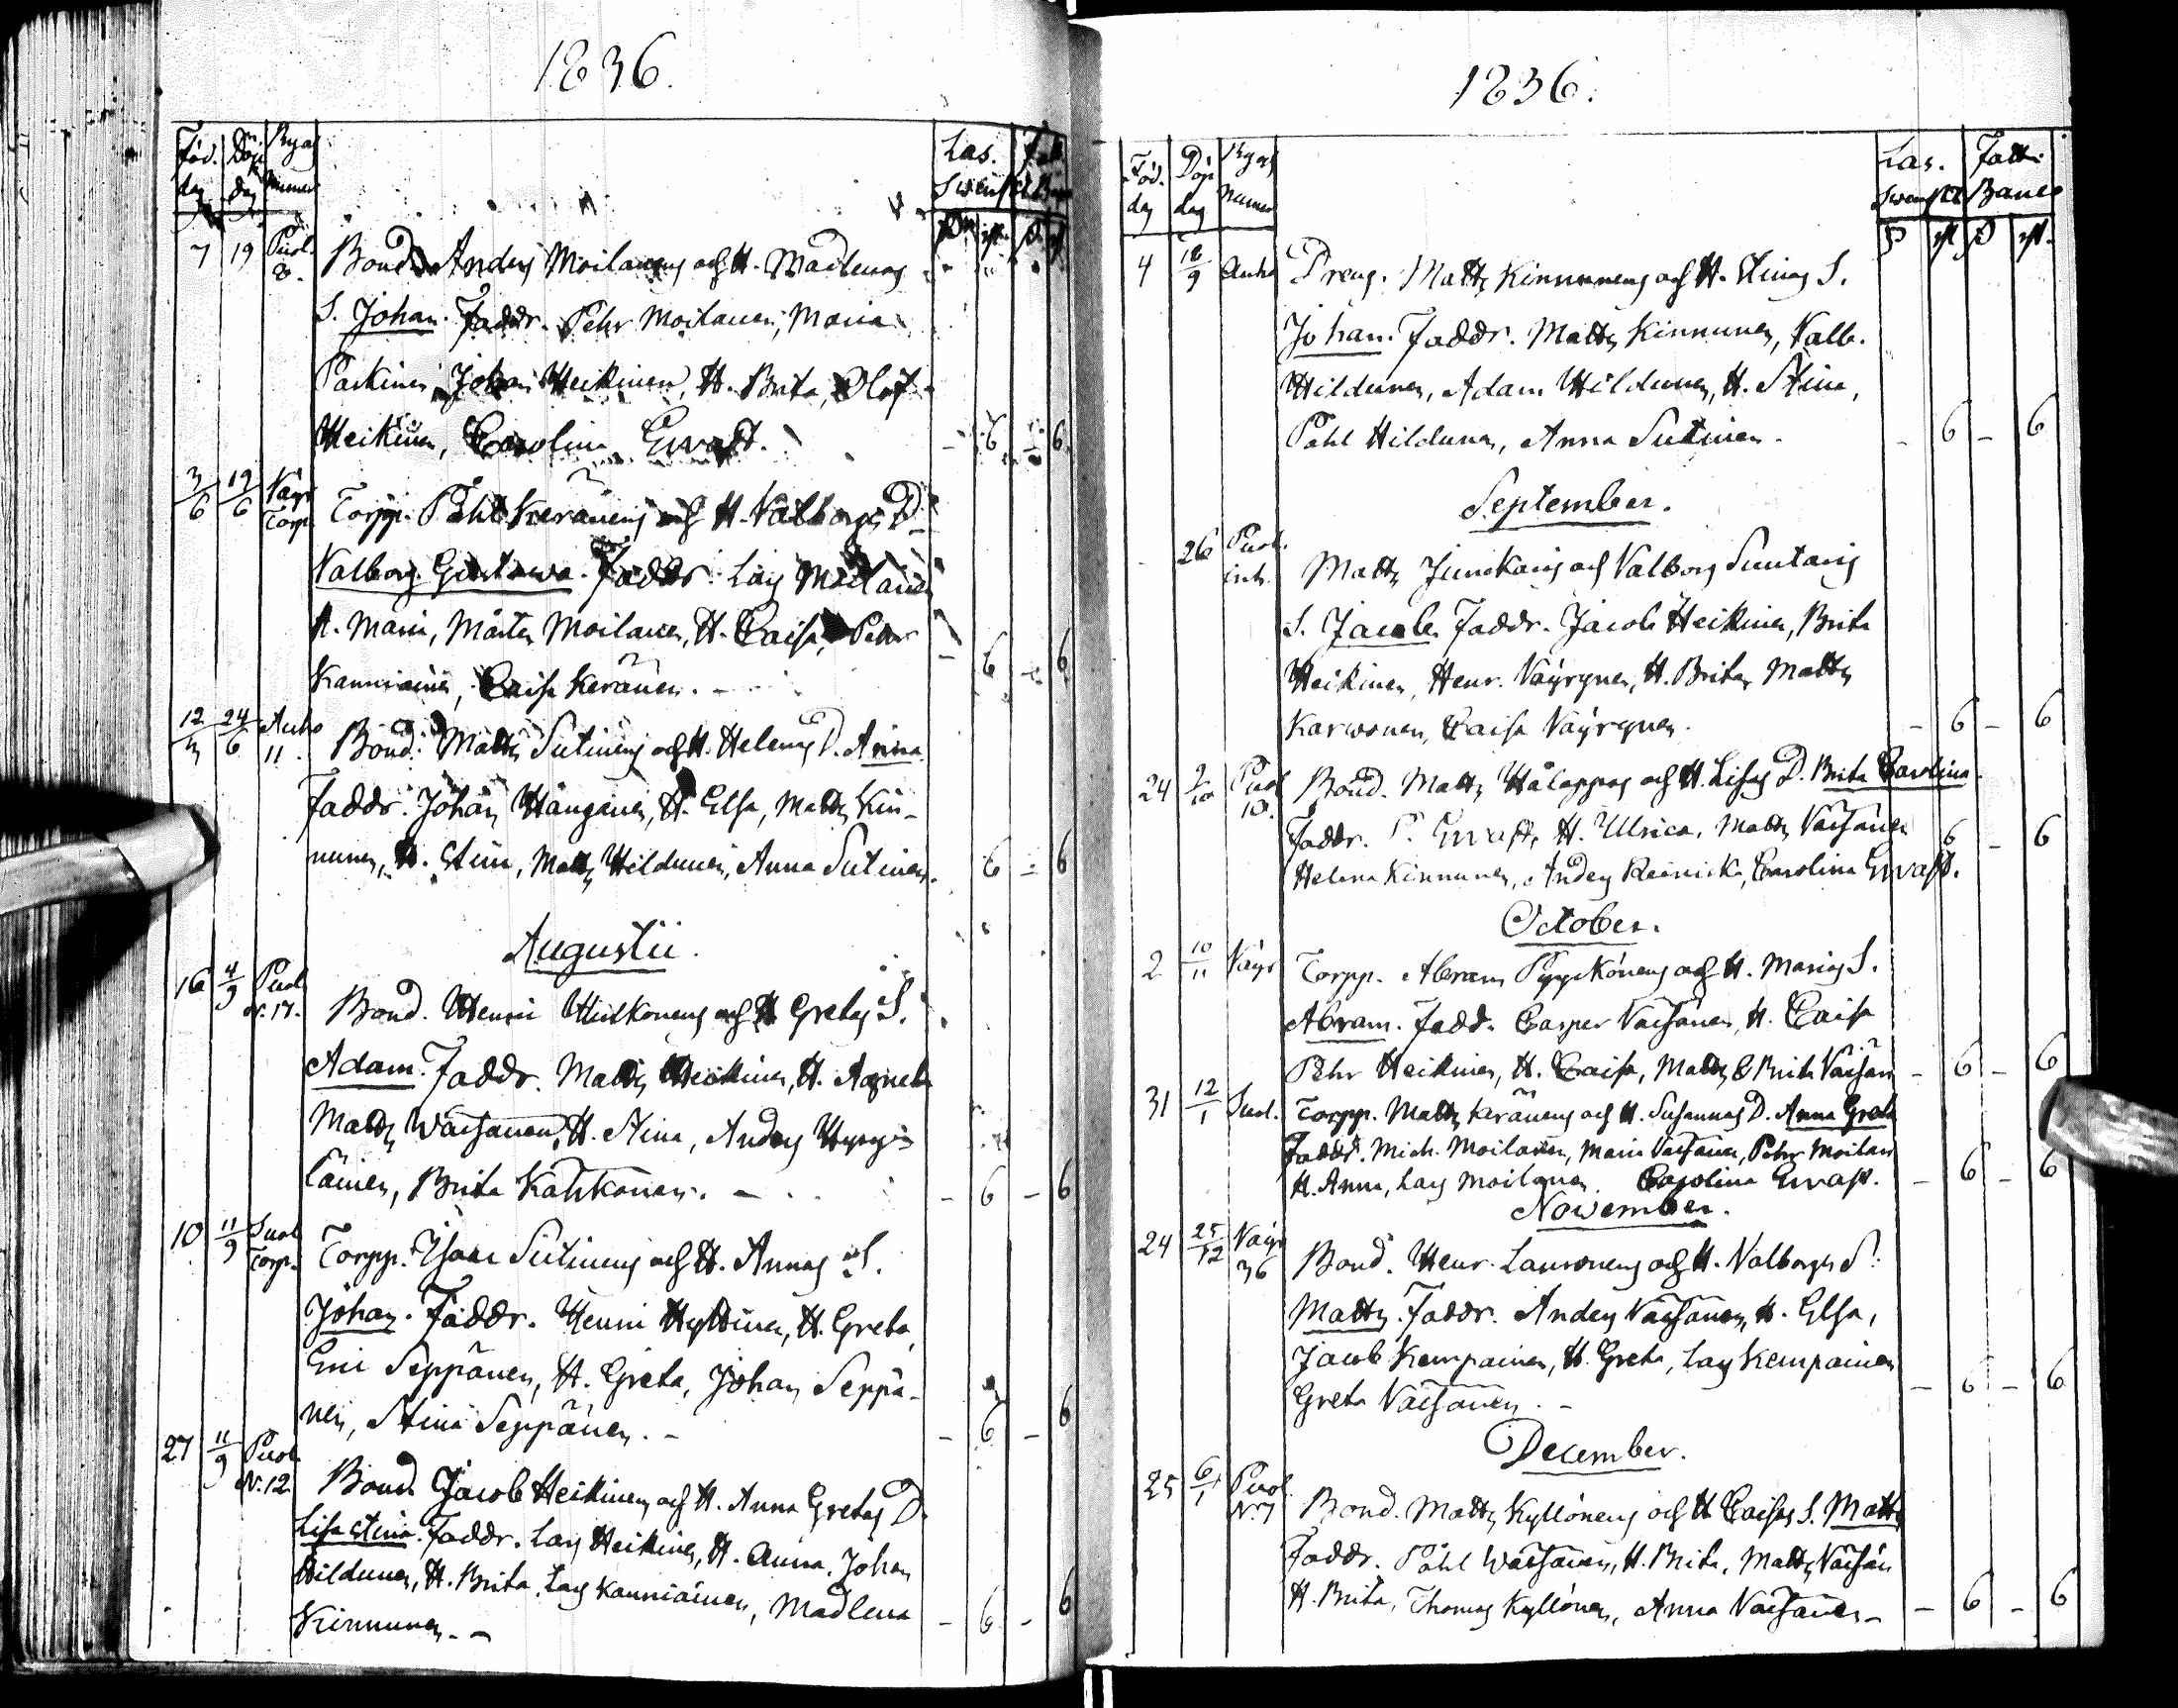 1836.
Föd. dag Döp dag Byas Numer Las. Swensk Fatt. Banc
7 19 Puol. Bond. Anders Moilanens och H. Madlenas
S. Johan. Faddr. Pehr Moilanen, Maria
Paskinen, Johan Heikinen, H. Brita, Olof
Heikinen, Carolina Ervast. - 6 - 6
3/6 19/6 Väyr Torp. Torpp. Påhl Keränens och H. Valborgs D.
Valborg Gustawa. Faddr. Lars Moilanen
H. Maria, Mårten Moilanen, H. Caisa, Pehr
Kanniainen, Caisa Keränen. - - 6 - 6
24/6 Auho 11. Bond. Matts Sutinens och H. Helenas D. Anna
Faddr. Johan Hänginen, H. Elsa, Matts Kin-
nunen, H. Stina, Matts Hildunen, Anna Sutinen. 6 - 6
Augustii.
16 4/9 Puol N:17. Bond. Henric Huskonens och H. Gretas S.
Adam. Faddr. Matts Heikinen, H. Agneta
Matts Wäisänen, H. Stina, Anders Hyry-
läinen, Brita Kähkönen. - - 6 - 6
10 11/9 Suol Torp. Torpp. Isaac Sutinens och H. Annas S.
Johan. Faddr. Henric Hyttinen, H. Greta,
Eric Seppänen, H. Greta, Johan Seppä-
nen, Stina Seppänen. - - 6 - 6
27 11/9 Puol. N:12. Bond. Jacob Heikinens och H. Anna Gretas D.
Lisa Stina. Faddr. Lars Heikinen, H. Anna, Johan
Hildunen, H. Brita, Lars Kanniainen, Madlena
Kinnunen. - - 6 - 6
1836.
Föd. dag Döp dag Byas Numer Las. Swenskt Fatt. Banco
4 18/9 Auho Dreng. Matts Kinnunens och H. Stinas S.
Johan. Faddr. Matts Kinnunen, Valb.
Hildunen, Adam Hildunen, H. Stina,
Påhl Hildunen, Anna Sutinen. - 6 - 6
September.
26 Puol. inh. Matts Junckaris och Valborg Suutaris
S. Jacob. Faddr. Jacob Heikinen, Brita
Heikinen, Henr. Väyrynen, H. Brita, Matts
Karwonen, Caisa Väyrynen. - 6 - 6
24 2/10 Puol 10. Bond. Matts Hålappas och H. Lisas D. Brita Carolina.
Faddr. P. Ervast, H. Ulrica, Matts Väisänen 6 - 6
Helena Kinnunen, Anders Reinicka, Carolina Ervast.
October.
2 10/11 Väyr Torpp. Abram Pyykönens och H. Marias S.
Abram. Fadd. Casper Väisänen, H. Caisa
Pehr Heikinen, H. Caisa, Matts & Brita Väisän - 6 - 6
31 12/1 Suol. Torpp. Matts Keränens och H. Susannas D. Anna Greta
Faddr. Mich. Moilanen, Maria Väisänen, Pehr Moilan
H. Anna, Lars Moilanen. Carolina Ervast. - 6 - 6
November.
24 25/12 Väyr 36 Bond. Henr. Lauronens och H. Valborgs S.
Matts. Faddr. Anders Väisänen, H. Elsa,
Jacob Kempainen, H. Greta, Lars Kempainen
Greta Väisänen. - - 6 - 6
December.
25 6/1 Puol N:7 Bond. Matts Kyllönens och H. Caisas S. Matts
Faddr. Påhl Wäisänen, H. Brita, Matts Väisän
H. Brita, Thomas Kyllönen, Anna Väisänen - - 6 - 6